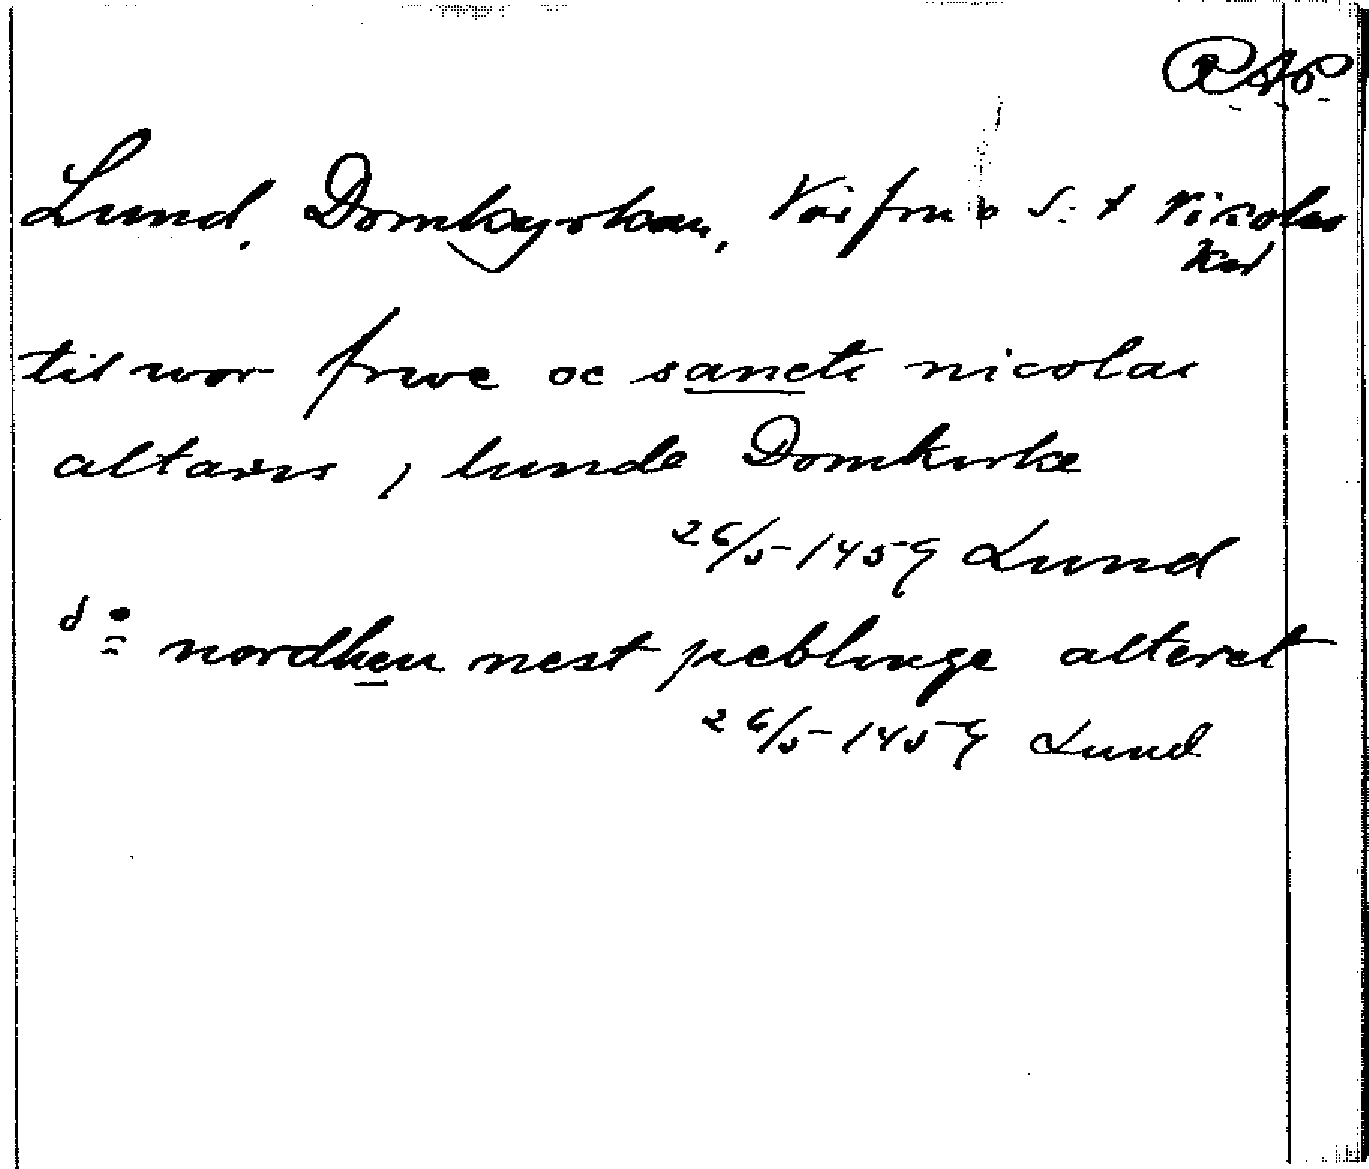 RAP
Lund, Domkyrkan, Vår fru o S:t Nikolaus
til wor frwe oc sancte nicolai
altaris i lunde Domkirke
26/5-1459 Lund
d:o nordhen nest peblinge alteret
26/5-1459 Lund